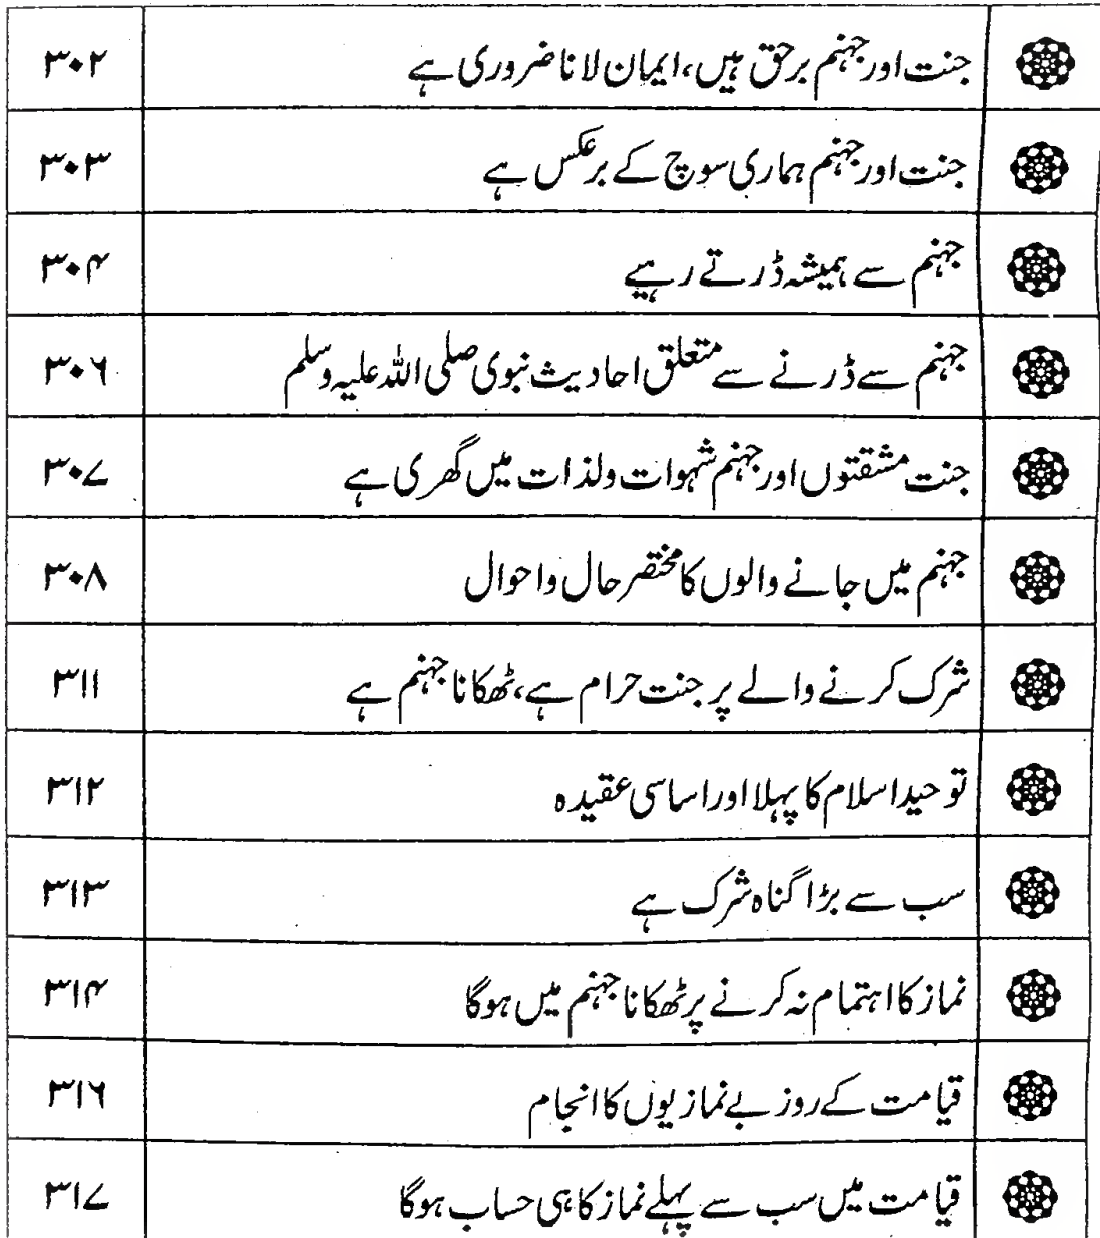 جنت اور جہنم برحق ہیں، ایمان لانا ضروری ہے ۳۰۲
جنت اور جہنم ہماری سوچ کے برعکس ہے ۳۰۳
جہنم سے ہمیشہ ڈرتے رہیے ۳۰۴
جہنم سے ڈرنے سے متعلق احادیث نبوی صلی اللہ علیہ وسلم ۳۰۶
جنت مشقتوں اور جہنم شہوات ولذات میں گھری ہے ۳۰۷
جہنم میں جانے والوں کا مختصر حال واحوال ۳۰۸
شرک کرنے والے پر جنت حرام ہے، ٹھکانا جہنم ہے ۳۱۱
توحید اسلام کا پہلا اور اساسی عقیدہ ۳۱۲
سب سے بڑا گناہ شرک ہے ۳۱۳
نماز کا اہتمام نہ کرنے پر ٹھکانا جہنم میں ہوگا ۳۱۴
قیامت کے روز بے نمازیوں کا انجام ۳۱۶
قیامت میں سب سے پہلے نماز کا ہی حساب ہوگا ۳۱۷